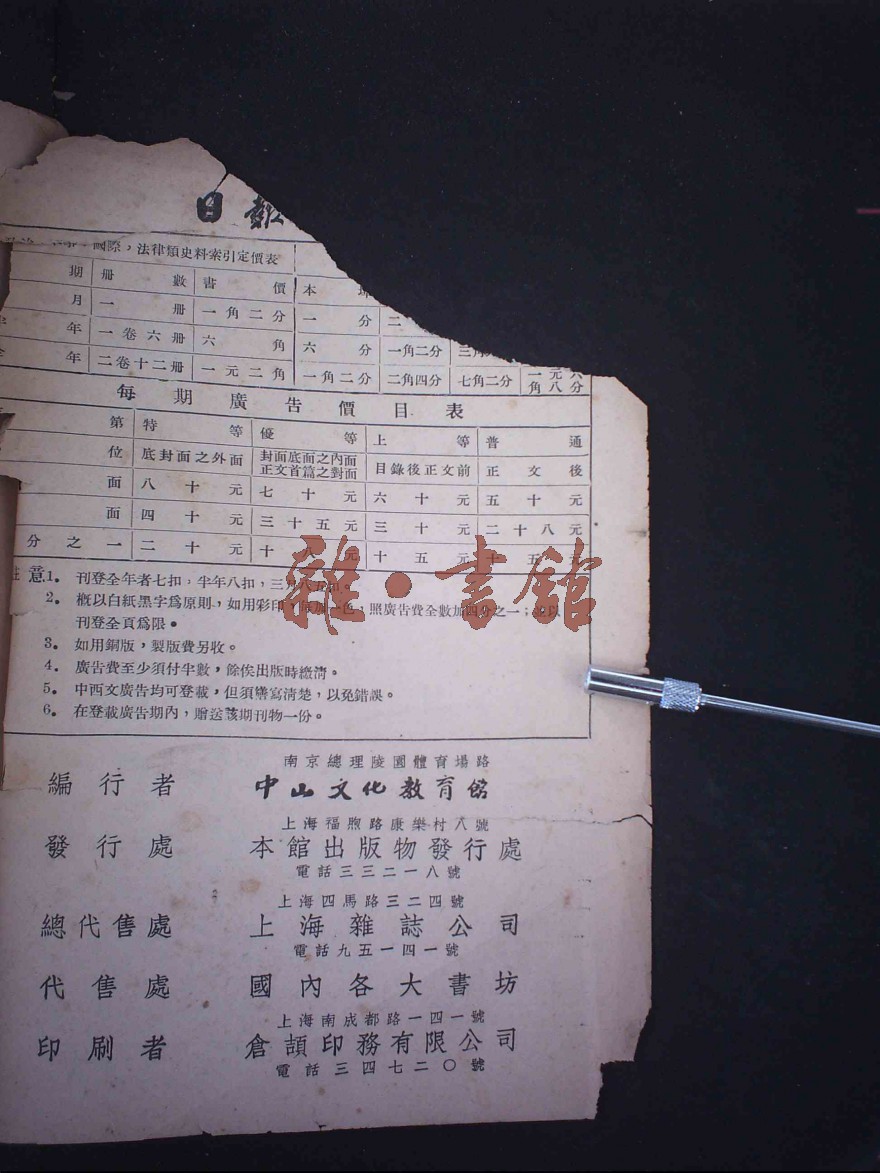 日報
國際，法律類史料索引定價表
期 册數 書價 本埠
月 一册 一角二分 一分 二
年 一卷六册 六角 六分 一角二分 三角
年 二卷十二册 一元二角 一角二分 二角四分 七角二分 一元六角八分
每期廣告價目表
第 特等 優等 上等 普通
位 底封面之外面 封面底面之內面正文首篇之對面 目錄後正文前 正文後
面 八十元 七十元 六十元 五十元
面 四十元 三十五元 三十元 二十八元
分之一 二十元 十 元 十五元 十五元
注意1. 刊登全年者七扣，半年八扣，三月八五扣。
2. 概以白紙黑字爲原則，如用彩印，每加一色，照廣告費全數加四分之一；以
刊登全頁爲限。
3. 如用銅版，製版費另收。
4. 廣告費至少須付半數，餘俟出版時繳清。
5. 中西文廣告均可登載，但須繕寫清楚，以免錯誤。
6. 在登載廣告期內，贈送該期刊物一份。
雜·書館
南京總理陵園體育場路
編行者 中山文化教育館
上海福煦路康樂村八號
發行處 本館出版物發行處
電話三三二一八號
上海四馬路三二四號
總代售處 上海雜誌公司
電話九五一四一號
代售處 國內各大書坊
上海南成都路一四一號
印刷者 倉頡印務有限公司
電話三四七二〇號